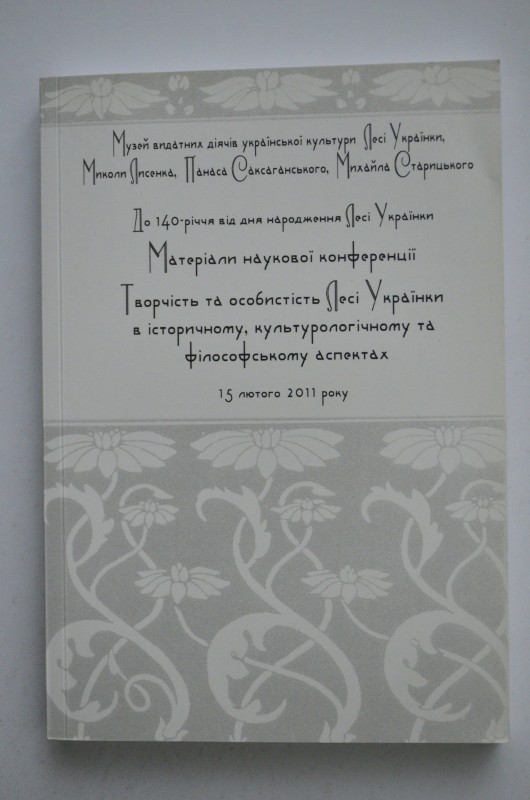 Музей видатних діячів української культури Лесі Українки,
Миколи Лисенка, Панаса Саксаганського, Михайла Старицького
До 140-річчя від дня народження Лесі Українки
Матеріали наукової конференції
Творчість та особистість Лесі Українки
в історичному, культурологічному та
філософському аспектах
15 лютого 2011 року